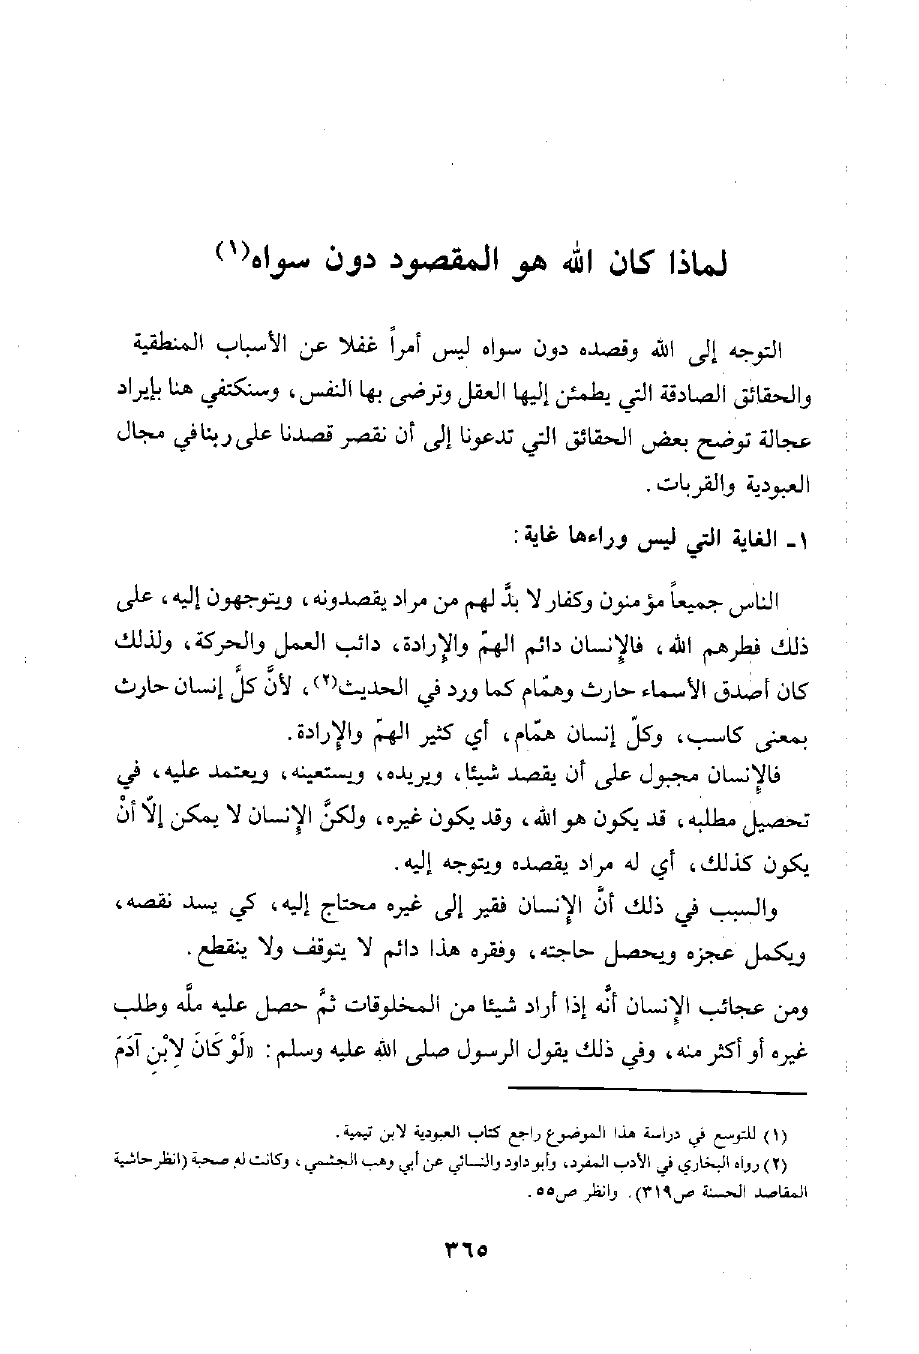 لماذا كان الله هو المقصود دون سواه(١)
التوجه إلى الله وقصده دون سواه ليس أمراً غفلا عن الأسباب المنطقية
والحقائق الصادقة التي يطمئن إليها العقل وترضى بها النفس، وسنكتفي هنا بإيراد
عجالة توضح بعض الحقائق التي تدعونا إلى أن نقصر قصدنا على ربنا في مجال
العبودية والقربات.
١ـ الغاية التي ليس وراءها غاية:
الناس جميعاً مؤمنون وكفار لا بدَّ لهم من مراد يقصدونه، ويتوجهون إليه، على
ذلك فطرهم الله، فالإنسان دائم الهمّ والإرادة، دائب العمل والحركة، ولذلك
كان أصدق الأسماء حارث وهمّام كما ورد في الحديث(٢)، لأنَّ كلَّ إنسان حارث
بمعنى كاسب، وكلّ إنسان همّام، أي كثير الهمّ والإرادة.
فالإنسان مجبول على أن يقصد شيئا، ويريده، ويستعينه، ويعتمد عليه، في
تحصيل مطلبه، قد يكون هو الله، وقد يكون غيره، ولكنَّ الإنسان لا يمكن إلّا أنْ
يكون كذلك، أي له مراد يقصده ويتوجه إليه.
والسبب في ذلك أنَّ الإنسان فقير إلى غيره محتاج إليه، كي يسد نقصه،
ويكمل عجزه ويحصل حاجته، وفقره هذا دائم لا يتوقف ولا ينقطع.
ومن عجائب الإنسان أنَّه إذا أراد شيئا من المخلوقات ثمَّ حصل عليه ملَّه وطلب
غيره أو أكثر منه، وفي ذلك يقول الرسول صلى الله عليه وسلم: «لَوْ كَانَ لِابْنِ آدَمَ
(١) للتوسع في دراسة هذا الموضوع راجع كتاب العبودية لابن تيمية.
(٢) رواه البخاري في الأدب المفرد، وأبو داود والنسائي عن أبي وهب الجشمي، وكانت له صحبة (انظر حاشية
المقاصد الحسنة ص٣١٩). وانظر ص٥٥.
٣٦٥